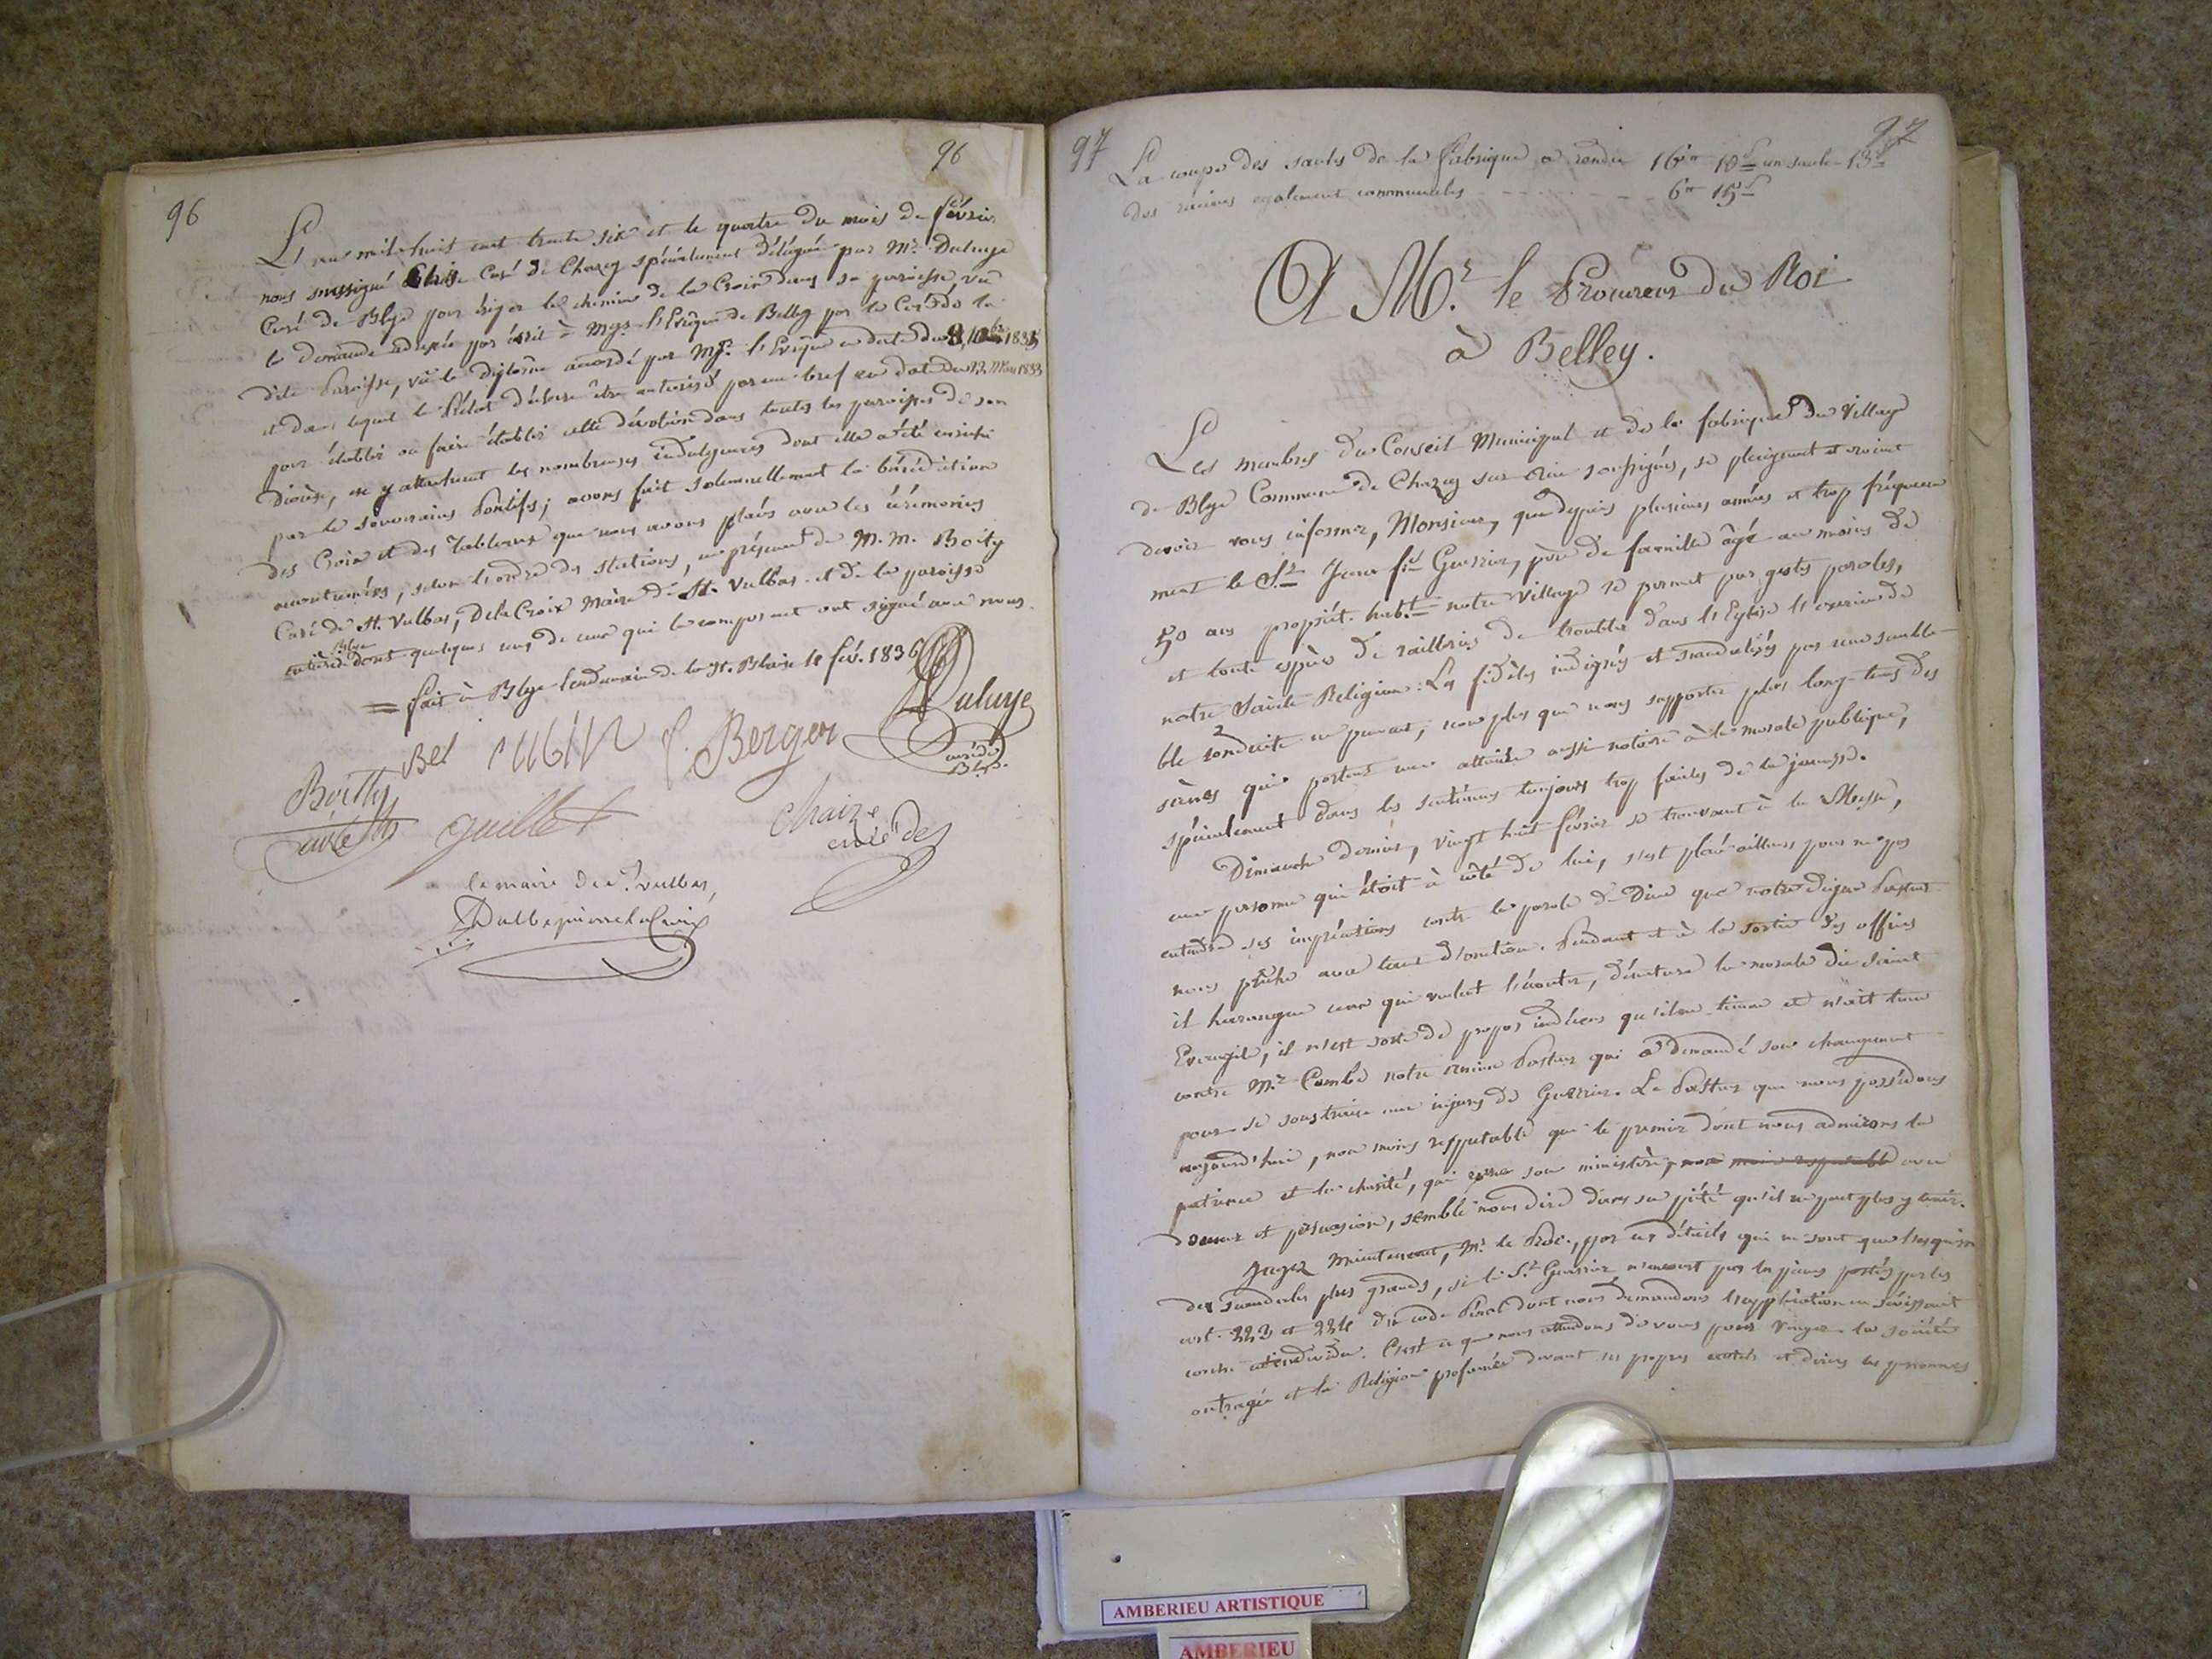 96
96
L'an mil huit cent trente six et le quatre du mois de février
nous soussigné Curé de Chazey spécialement délégué par Mr. Duluye
Curé de Blye pour ériger le chemin de la Croix dans sa paroisse, vu
la demande adressée par écrit à Mgr. l'Evêque de Belley par le Curé de la
dite Paroisse, vû le diplôme accordé par Mgr. l'Evêque en date du 1835
et dans lequel le Prélat déclare être autorisé par un bref en date du Mars 1833
pour établir ou faire établir cette dévotion dans toutes les paroisses de son
diocèse, en y attachant les nombreuses indulgences dont elle a été enrichie
par le souverains Pontifs; avons fait solemnellement la bénédiction
des Croix et des Tableaux que nous avons placés avec les cérémonies
accoutumées, selon l'ordre des stations, en présence de M.M. Boity
Curé de St. Vulbas, De la Croix Maire de St. Vulbas et de la paroisse
de Blye
entière dont quelques uns de ceux qui la composent ont signé avec nous.
= fait à Blye lendemain de la St. Blaise le fév. 1836
Duluye
curé de
Blye.
Bel cubin P. Berger
Boitty
curé de
guillet
Chaize
curé de
le maire de St. vulbas,
Dalbepierre la Croix
97
97
La coupe des saules de la fabrique a rendu 16tt 10s un saule 13s
des racines également communales - - - - - - 6tt 15s
A Mr. le Procureur du Roi
à Belley.
Les membres du Conseil Municipal et de la fabrique du Village
de Blye Commune de Chazey sur Ain soussignés, se plaignent et croient
devoir vous informer, Monsieur, que depuis plusieurs années et trop fréquem
ment le Sr. Jean fis Guerrier, père de famille âgé au moins de
50 ans propriét. habt. notre Village se permet par gestes paroles,
et toute espèce de railleries de troubler dans l'Eglise l'exercice de
notre Sainte Religion. Les fidèles indignés et scandalisés par une sembla-
ble conduite ne peuvent, non plus que nous supporter plus long-tems des
scènes qui portent une atteinte aussi notoire à la morale publique,
spécialement dans les sentimens toujours trop faibles de la jeunesse.
Dimanche dernier, vingt huit février se trouvant à la Messe,
une personne qui étoit à côté de lui, s'est placé ailleurs pour ne pas
entendre ses imprécations contre la parole de Dieu que notre digne Pasteur
nous prêche avec tant d'onction. Pendant et à la sortie des offices
il harangue ceux qui veulent l'écouter, dénature la morale du saint
Evangile, il n'est sorte de propos indécens qu'il ne tienne et n'ait tenu
contre Mr. Combe notre ancien Pasteur qui a demandé son changement
pour se soustraire aux injures de Guerrier. Le Pasteur que nous possédons
aujourd'hui, non moins respectable que le premier dont nous admirons la
patience et la charité, qui exerce son ministère, non moins respectable avec
douceur et persuasion, semble nous dire dans sa piété qu'il ne peut plus y tenir.
Jugez maintenant, Mr. le Proc., par ces détails qui ne sont que l'esquisse
des scandales plus grands, si le Sr. Guerrier n'encourt pas les peines portées par les
art. 223 et 224 du code Pénal dont nous demandons l'application en sévissant
contre cet individu. C'est ce que nous attendons de vous pour venger la société
outragée et la Religion profanée devant ses propres autels et dans les personnes
AMBERIEU ARTISTIQUE
AMBERIEU